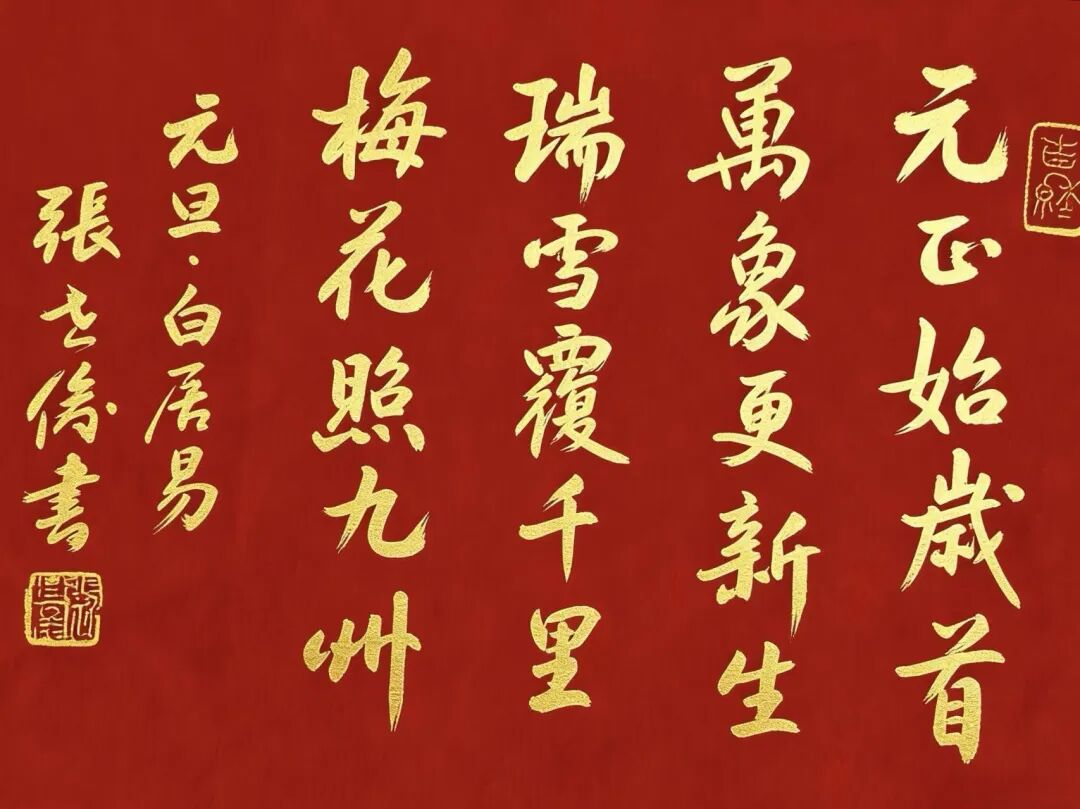 元正始歲首
萬象更新生
瑞雪覆千里
梅花照九州
元旦·白居易
張書